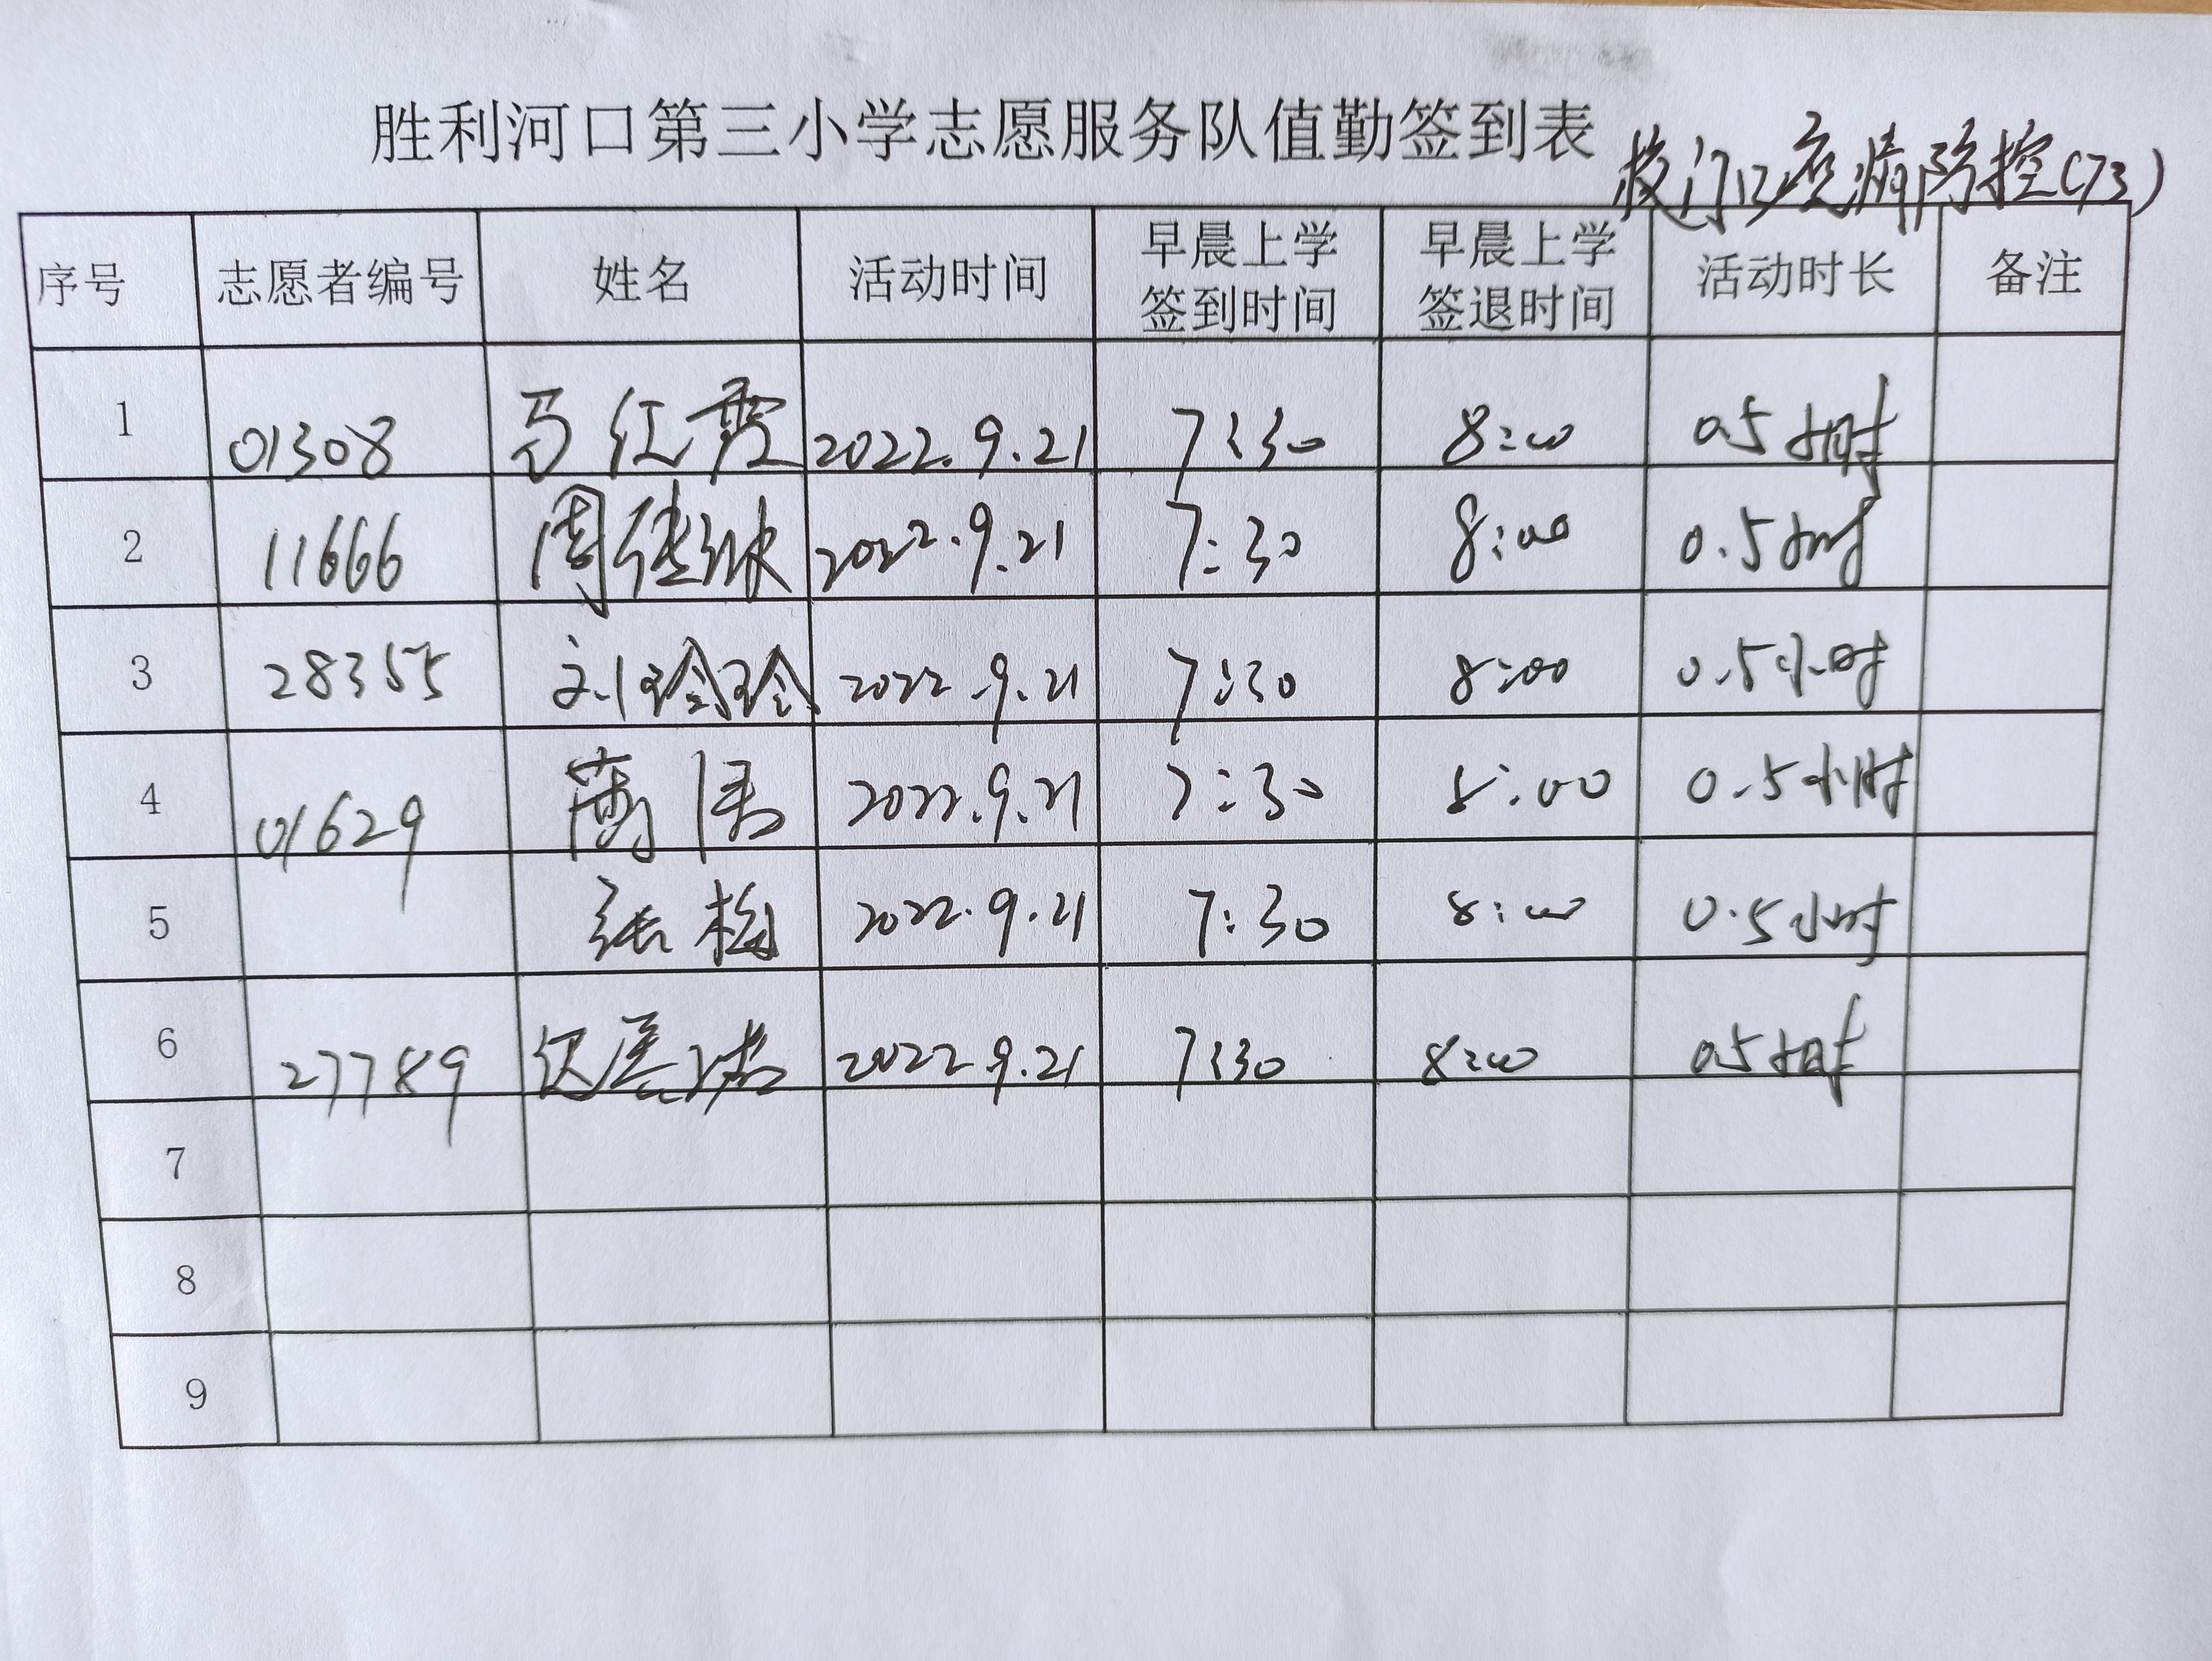 胜利河口第三小学志愿服务队值勤签到表
校门口疫情防控(73)
序号 志愿者编号 姓名 活动时间 早晨上学签到时间 早晨上学签退时间 活动时长 备注
1 01308 马红霞 2022.9.21 7:30 8:00 0.5小时
2 11666 周 2022.9.21 7:30 8:00 0.5小时
3 28355 刘玲玲 2022.9.21 7:30 8:00 0.5小时
4 01629 2022.9.21 7:30 8:00 0.5小时
5 张梅 2022.9.21 7:30 8:00 0.5小时
6 27789 2022.9.21 7:30 8:00 0.5小时
7
8
9